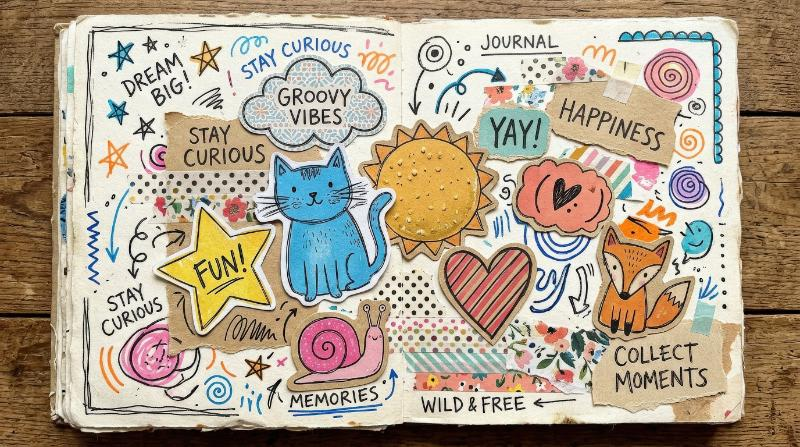 DREAM
BIG!
STAY CURIOUS
GROOVY
VIBES
STAY
CURIOUS
FUN!
STAY
CURIOUS
MEMORIES
JOURNAL
YAY!
HAPPINESS
COLLECT
MOMENTS
WILD & FREE